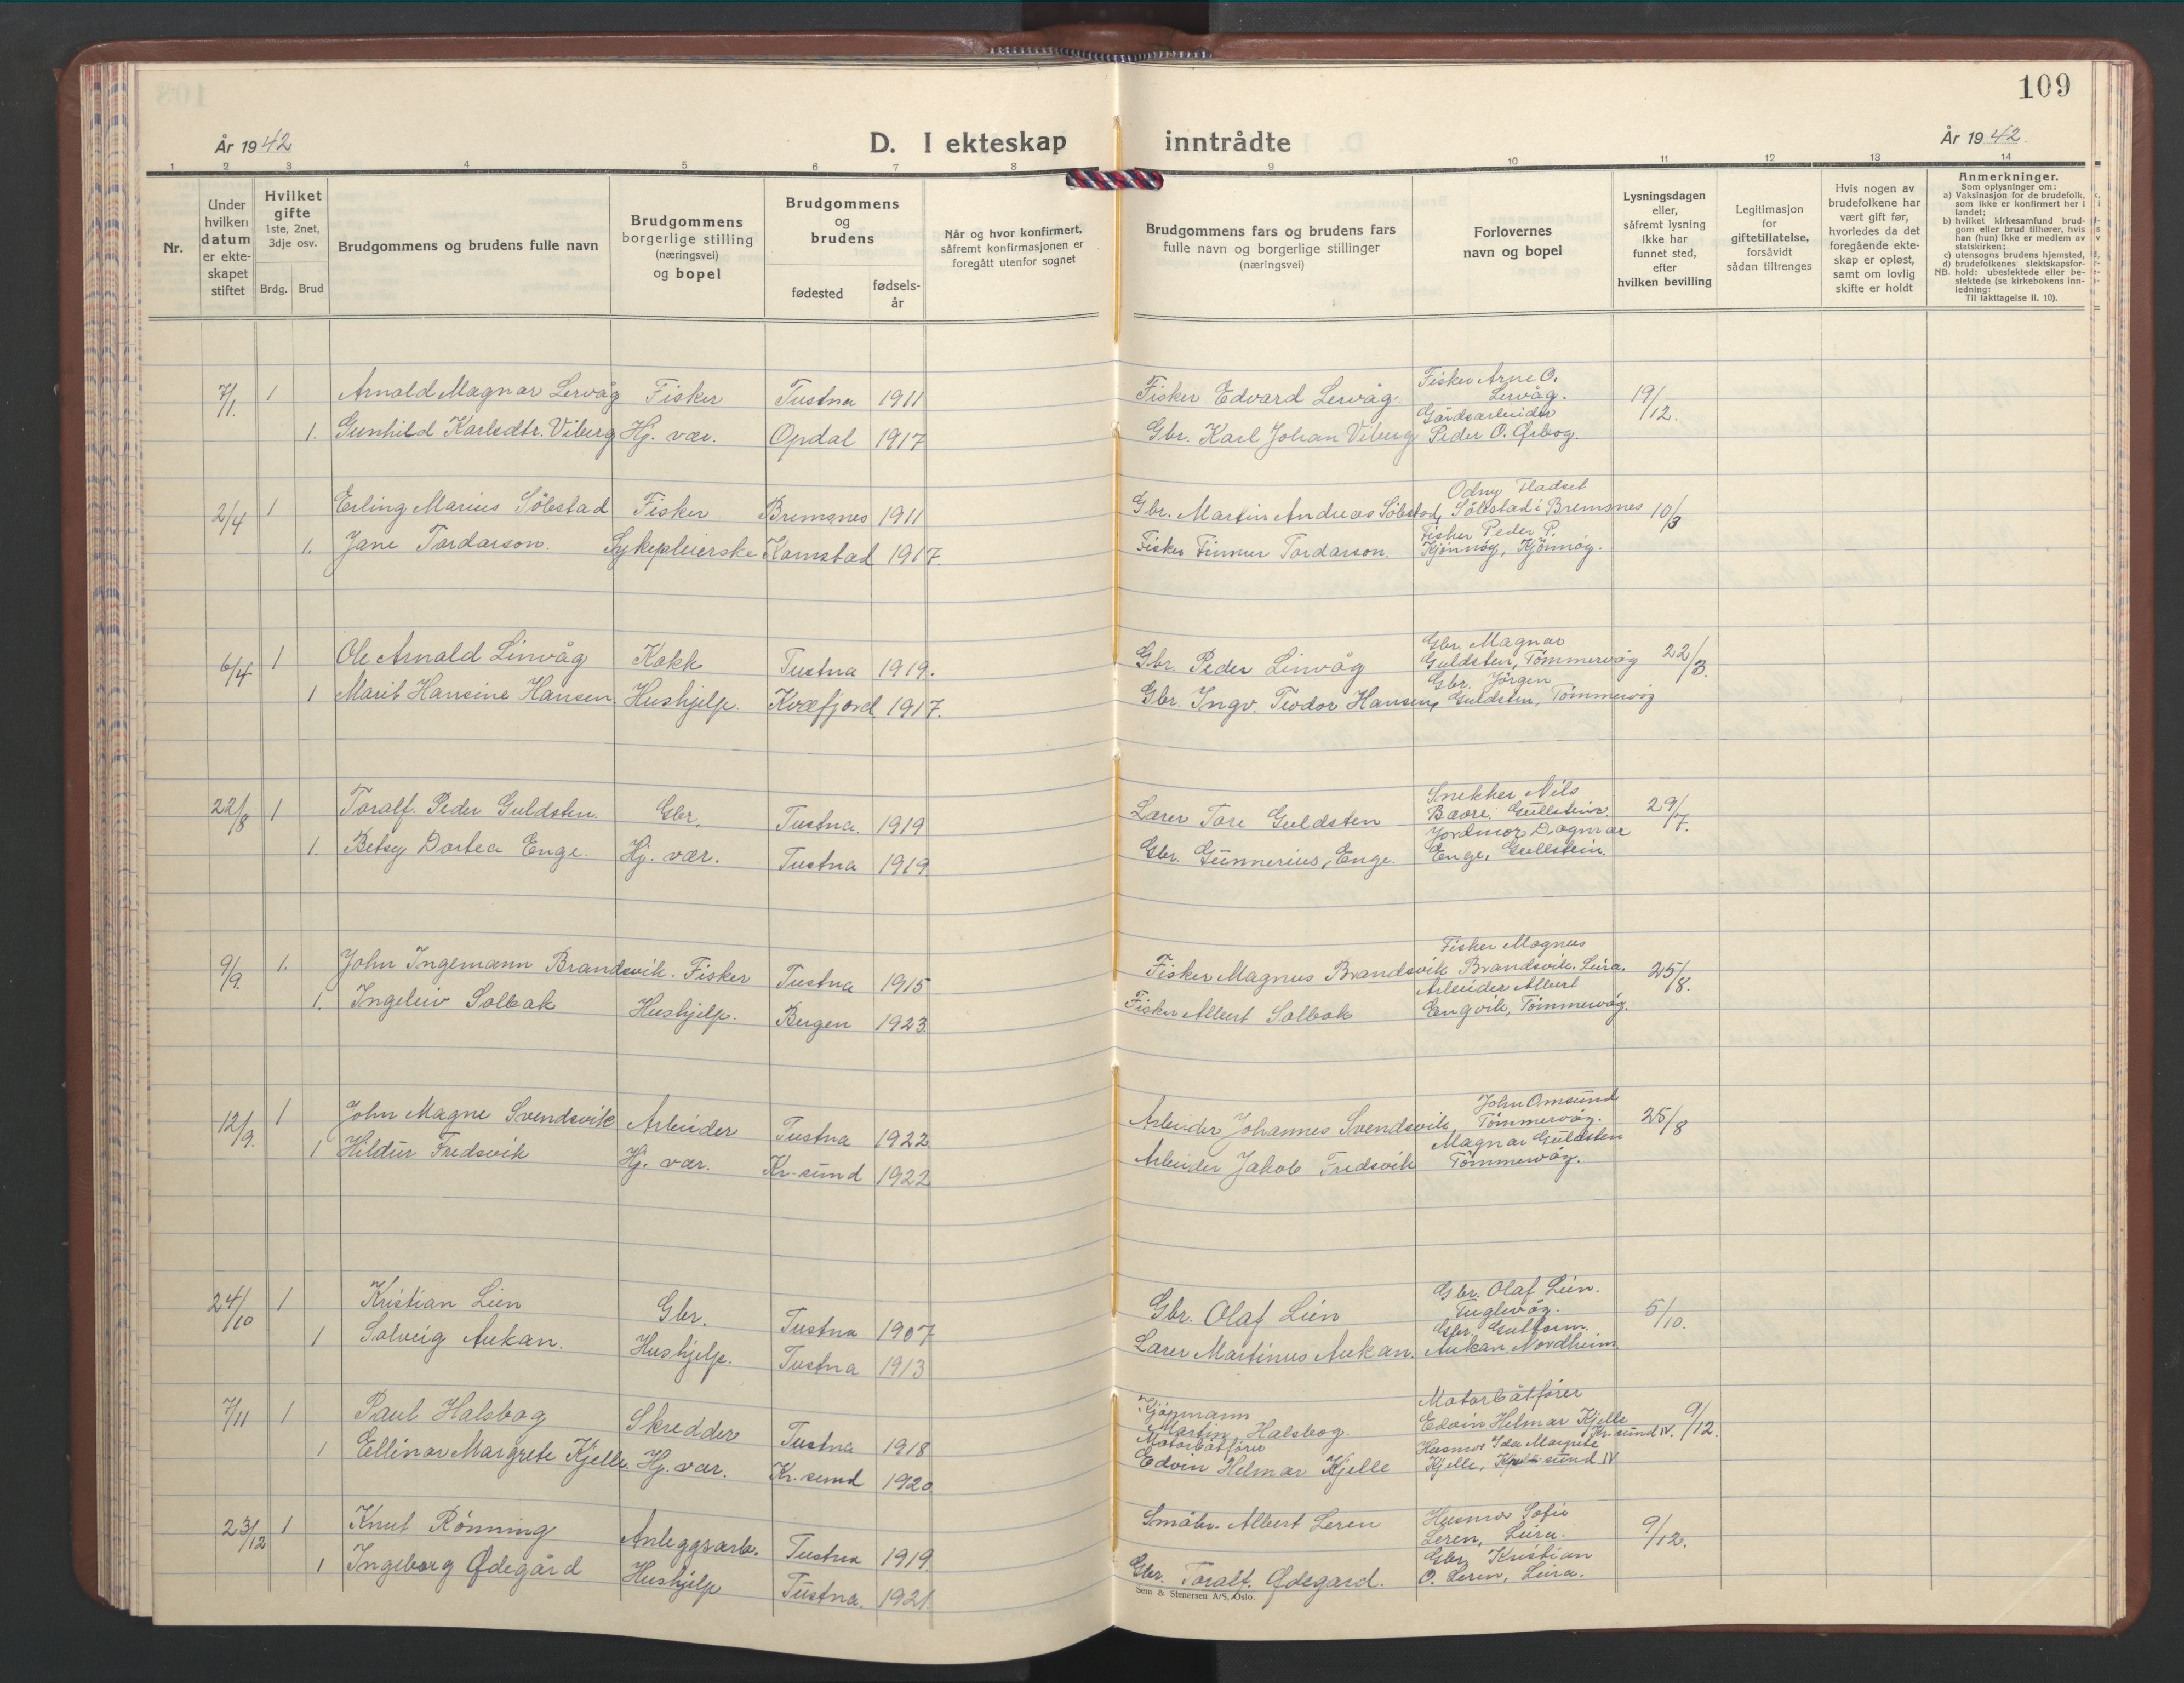 109
År 1942
D. I ekteskap inntrådte
År 1942.
1 2 3 4 5 6 7 8 9 10 11 12 13 14
Nr.
Under hvilken datum er ekte-skapet stiftet
Hvilket gifte 1ste, 2net, 3dje osv.
Brdg. Brud
Brudgommens og brudens fulle navn
Brudgommens borgerlige stilling (næringsvei) og bopel
Brudgommens og brudens
fødested
fødsels-år
Når og hvor konfirmert, såfremt konfirmasjonen er foregått utenfor sognet
Brudgommens fars og brudens fars fulle navn og borgerlige stillinger (næringsvei)
Forlovernes navn og bopel
Lysningsdagen eller, såfremt lysning ikke har funnet sted, efter hvilken bevilling
Legitimasjon for giftetillatelse, forsåvidt sådan tiltrenges
Hvis nogen av brudefolkene har vært gift før, hvorledes da det foregående ekte-skap er opløst, samt om lovlig skifte er holdt
Anmerkninger.
Som oplysninger om:
a) Vaksinasjon for de brudefolk, som ikke er konfirmert her i landet;
b) hvilket kirkesamfund brud-gom eller brud tilhører, hvis han (hun) ikke er medlem av statskirken;
c) utensogns brudens hjemsted,
d) brudefolkenes slektskapsfor-hold: ubeslektede eller be-slektede (se kirkebokens inn-ledning:
NB.
Til iakttagelse II. 10).
7/1. 1 Arnold Magnar Lervåg Fisker Tustna 1911 Fisker Edvard Lervåg Fisker Arne O. Lervåg. 19/12.
1. Gunhild Karlsdtr. Viberg Hj. vær. Opdal 1917 Gbr. Karl Johan Viberg Gårdsarbeider Peder O. Ørbog.
2/4 1 Erling Marius Söbstad Fisker Bremsnes 1911 Gbr. Martin Andreas Söbstad, Odny Fladset Söbstad i Bremsnes 10/3
1. Jane Tordarson. Sykepleierske Kornstad 1917. Fisker Finnur Tordarson. Fisker Peder P. Kjönnöy, Kjönnöy.
6/4 1 Ole Arnold Linvåg Kokk Tustna 1919. Gbr. Peder Linvåg Gbr. Magnar Guldsten, Tömmervåg 22/3.
1 Marit Hansine Hansen. Hushjelp. Kvæfjord 1917. Gbr. Ingv. Teodor Hansen, Gbr. Jörgen Guldsten, Tömmervåg
22/8 1 Toralf Peder Guldsten. Gbr. Tustna. 1919 Lærer Tore Guldsten Snekker Nils Bavre. Gullstein. 29/7.
1. Betsy Dortea Enge. Hj. vær. Tustna 1919 Gbr. Gunnerius, Enge. Jordmor Dagmar Enge, Gullstein.
9/9. 1. John Ingemann Brandsvik. Fisker Tustna 1915 Fisker Magnus Brandsvik Fisker Magnus Brandsvik. Leira. 25/8.
1. Ingeleiv Solbak Hushjelp. Bergen 1923 Fisker Albert Solbak Arbeider Albert Engvik, Tömmervåg.
12/9. 1 John Magne Svendsvik Arbeider Tustna 1922 Arbeider Johannes Svendsvik John Omsund Tömmervåg. 25/8
1 Hildur Fredsvik Hj. vær. Kr.sund 1922 Arbeider Jakob Fredsvik Magnar Guldsten Tömmervåg.
24/10 1 Kristian Lien Gbr. Tustna 1907 Gbr. Olaf Lien Gbr. Olaf Lien. Fuglvåg. 5/10.
1 Solveig Aukan. Hushjelp. Tustna 1913 Lærer Martinus Aukan. Gbr. Guttorm Aukan Nordheim
7/11 1 Paul Halsbog Skredder Tustna 1918 Sjömann Martin Halsbog. Motorbåtfører Edvin Helmar Kjelle Kr.sund N. 9/12.
1 Ellinor Margrete Kjelle. Hj. vær. Kr.sund 1920. Motorbåtfører Edvin Helmar Kjelle Husmor Ida Margrete Kjelle, sund N
23/12 1 Knut Rönning Anleggsarb. Tustna 1919 Småbr. Albert Leren Husmor Sofie Leren, Leira. 9/12.
1 Ingeborg Ødegård Hushjelp Tustna. 1921. Gbr. Toralf Ødegard. Gbr. Kristian O. Leren, Leira.
Sem & Stenersen A/S, Oslo.